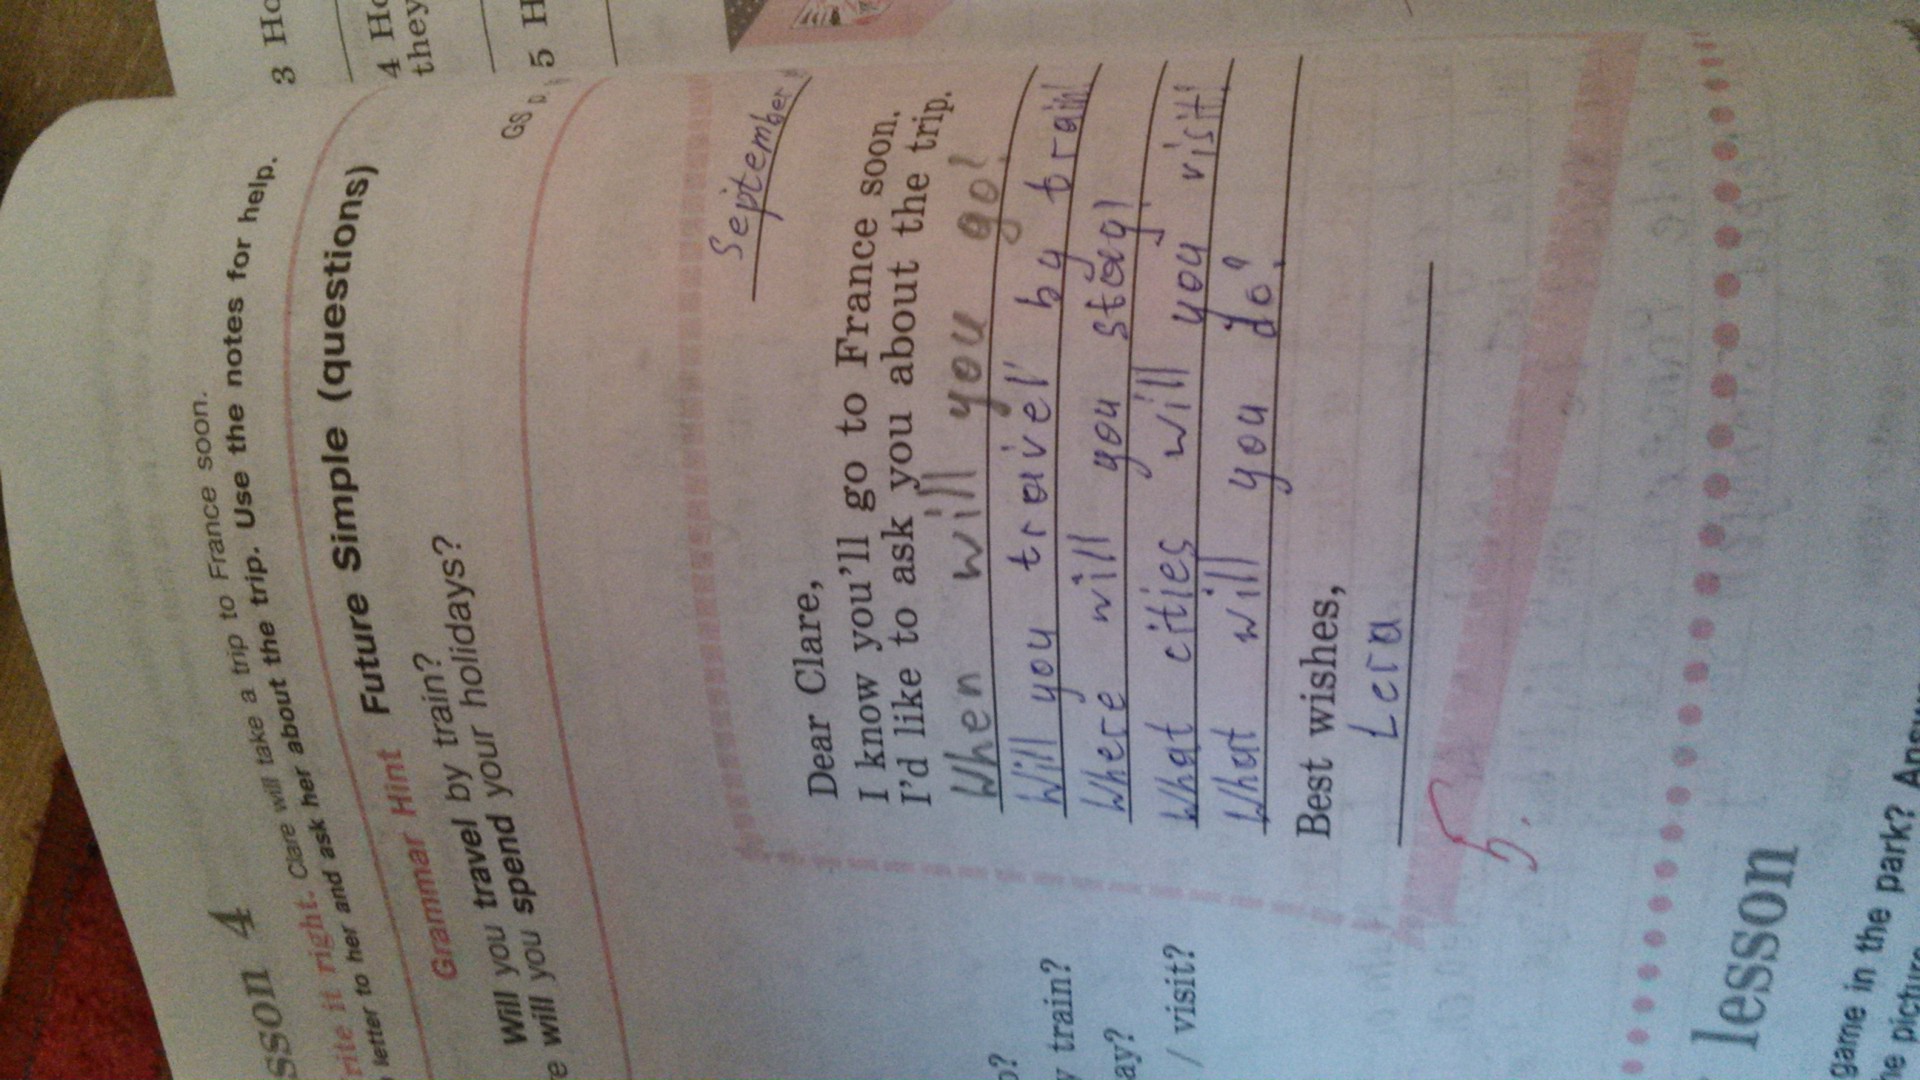 sson 4
rite it right. Clare will take a trip to France soon.
letter to her and ask her about the trip. Use the notes for help.
Grammar Hint Future Simple (questions)
Will you travel by train?
e will you spend your holidays?
GS p.
September
Dear Clare,
I know you'll go to France soon.
I'd like to ask you about the trip.
When will you go?
Will you travel by train?
Where will you stay?
What cities will you visit?
What will you do?
Best wishes,
Lera
o?
y train?
ay?
/ visit?
lesson
game in the park? Answ
he picture
3 Ho
4 Ho
they
5 H